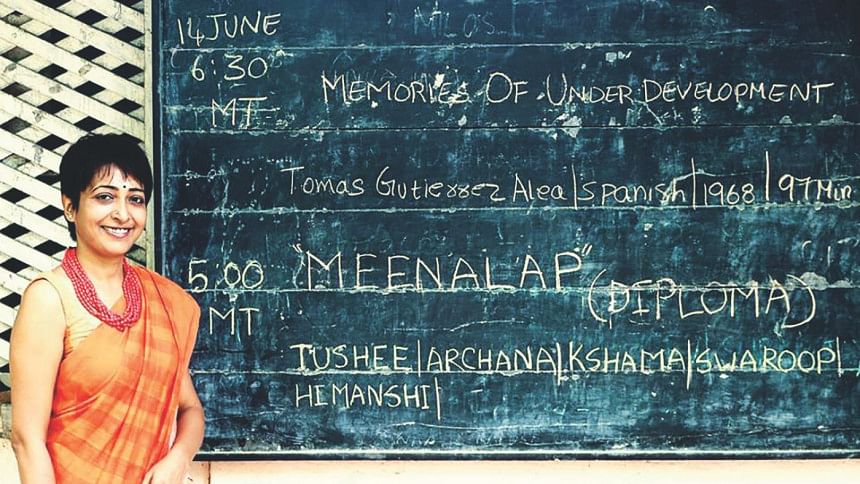 14 JUNE
6:30
MT
MEMORIES OF UNDER DEVELOPMENT
Tomas Gutierrez Alea | Spanish | 1968 | 97 Min
5:00
MT
"MEENALAP"
(DIPLOMA)
TUSHEE | ARCHANA | KSHAMA | SWAROOP |
HIMANSHI |